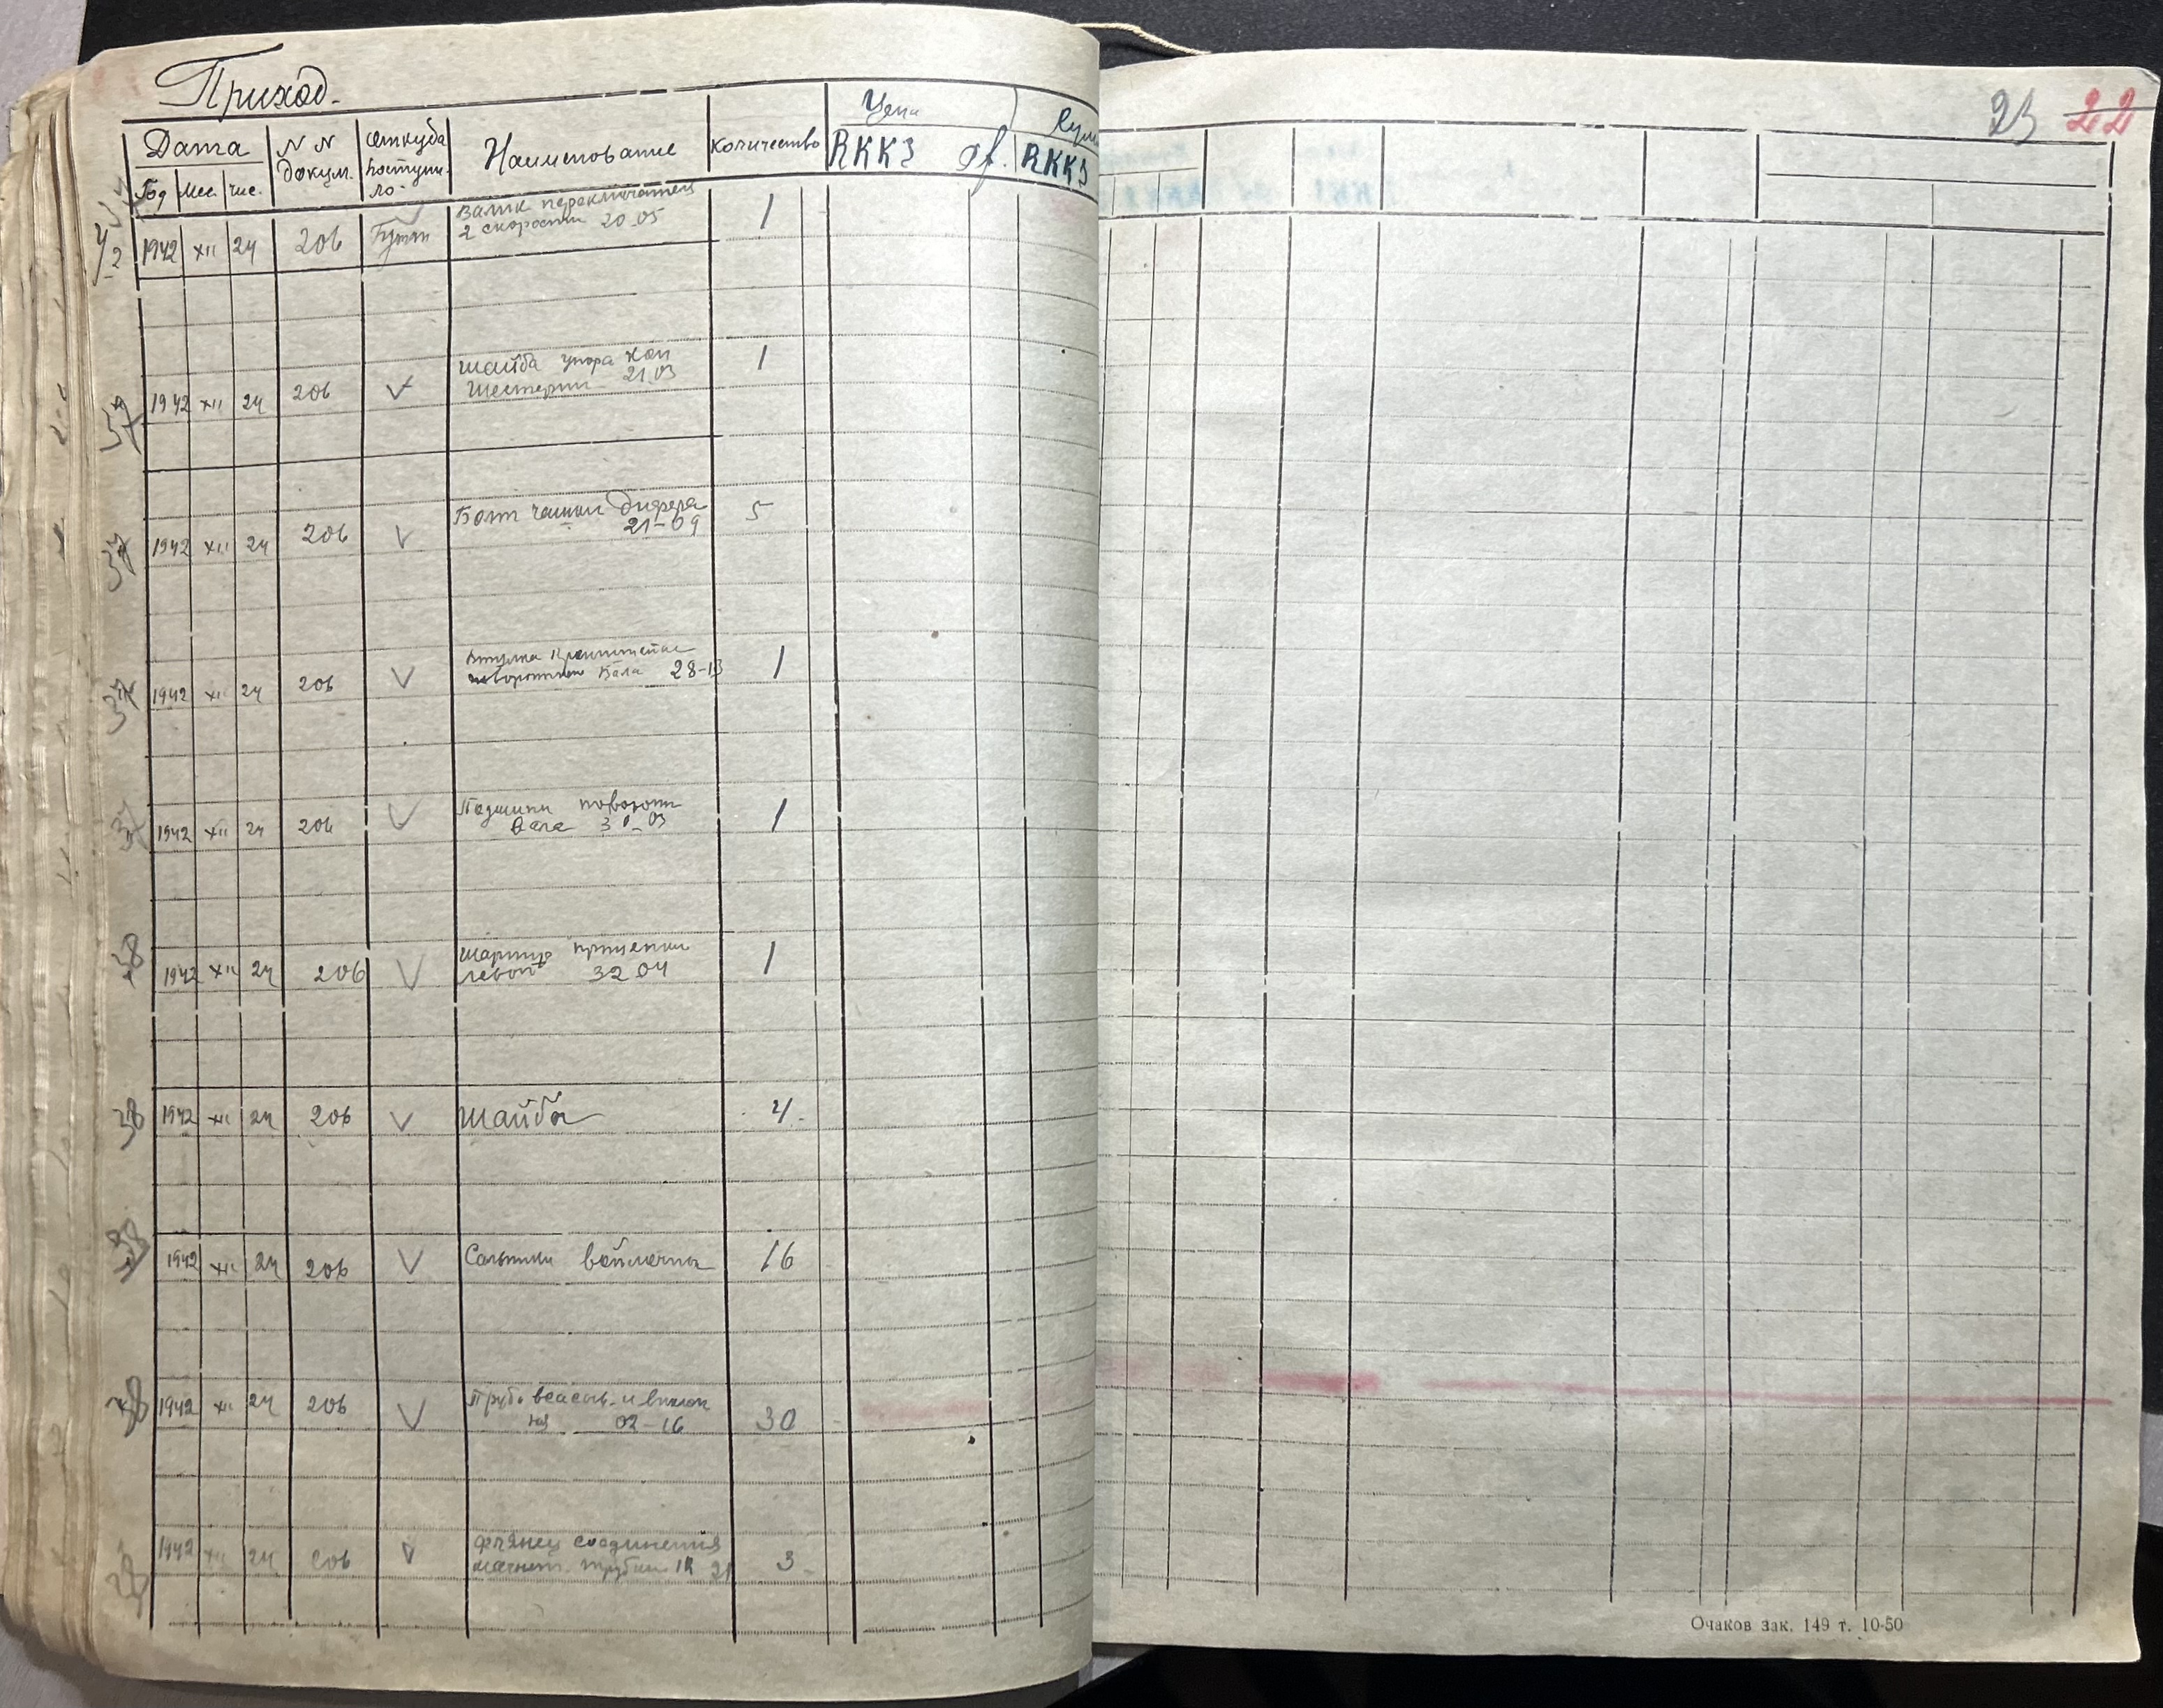 Приход.
23 22
Дата
N N докум.
Откуда поступи-ло-
Наименование
Количество
Цена
RKKЗ
RKKЗ
Год Мес. Чис.
1942 XII 24 206
Валик переключателя
2 скорости 20-05
1
1942 XII 24 206 V
Шайба упора кон
Шестерни 21 03
1
37
1942 XII 24 206 V
Болт чашки Дифера
21-09
5
37
1942 XII 24 206 V
Втулка Кронштейна
Вала 28-13
1
37
1942 XII 24 206 V
Подшипн поворотн
Вала 30-03
1
38
1942 XII 24 206 V
Шарнир прицепки
левой 32 04
1
38
1942 XII 24 206 V
Шайба
4
38
1942 XII 24 206 V
Сальники войлочны
16
38
1942 XII 24 206 V
Труба всасыв. и выхлоп
ная 02-16
30
1942 XII 24 206 V
Фланец соединения
трубки
3
Очаков зак. 149 т. 10-50